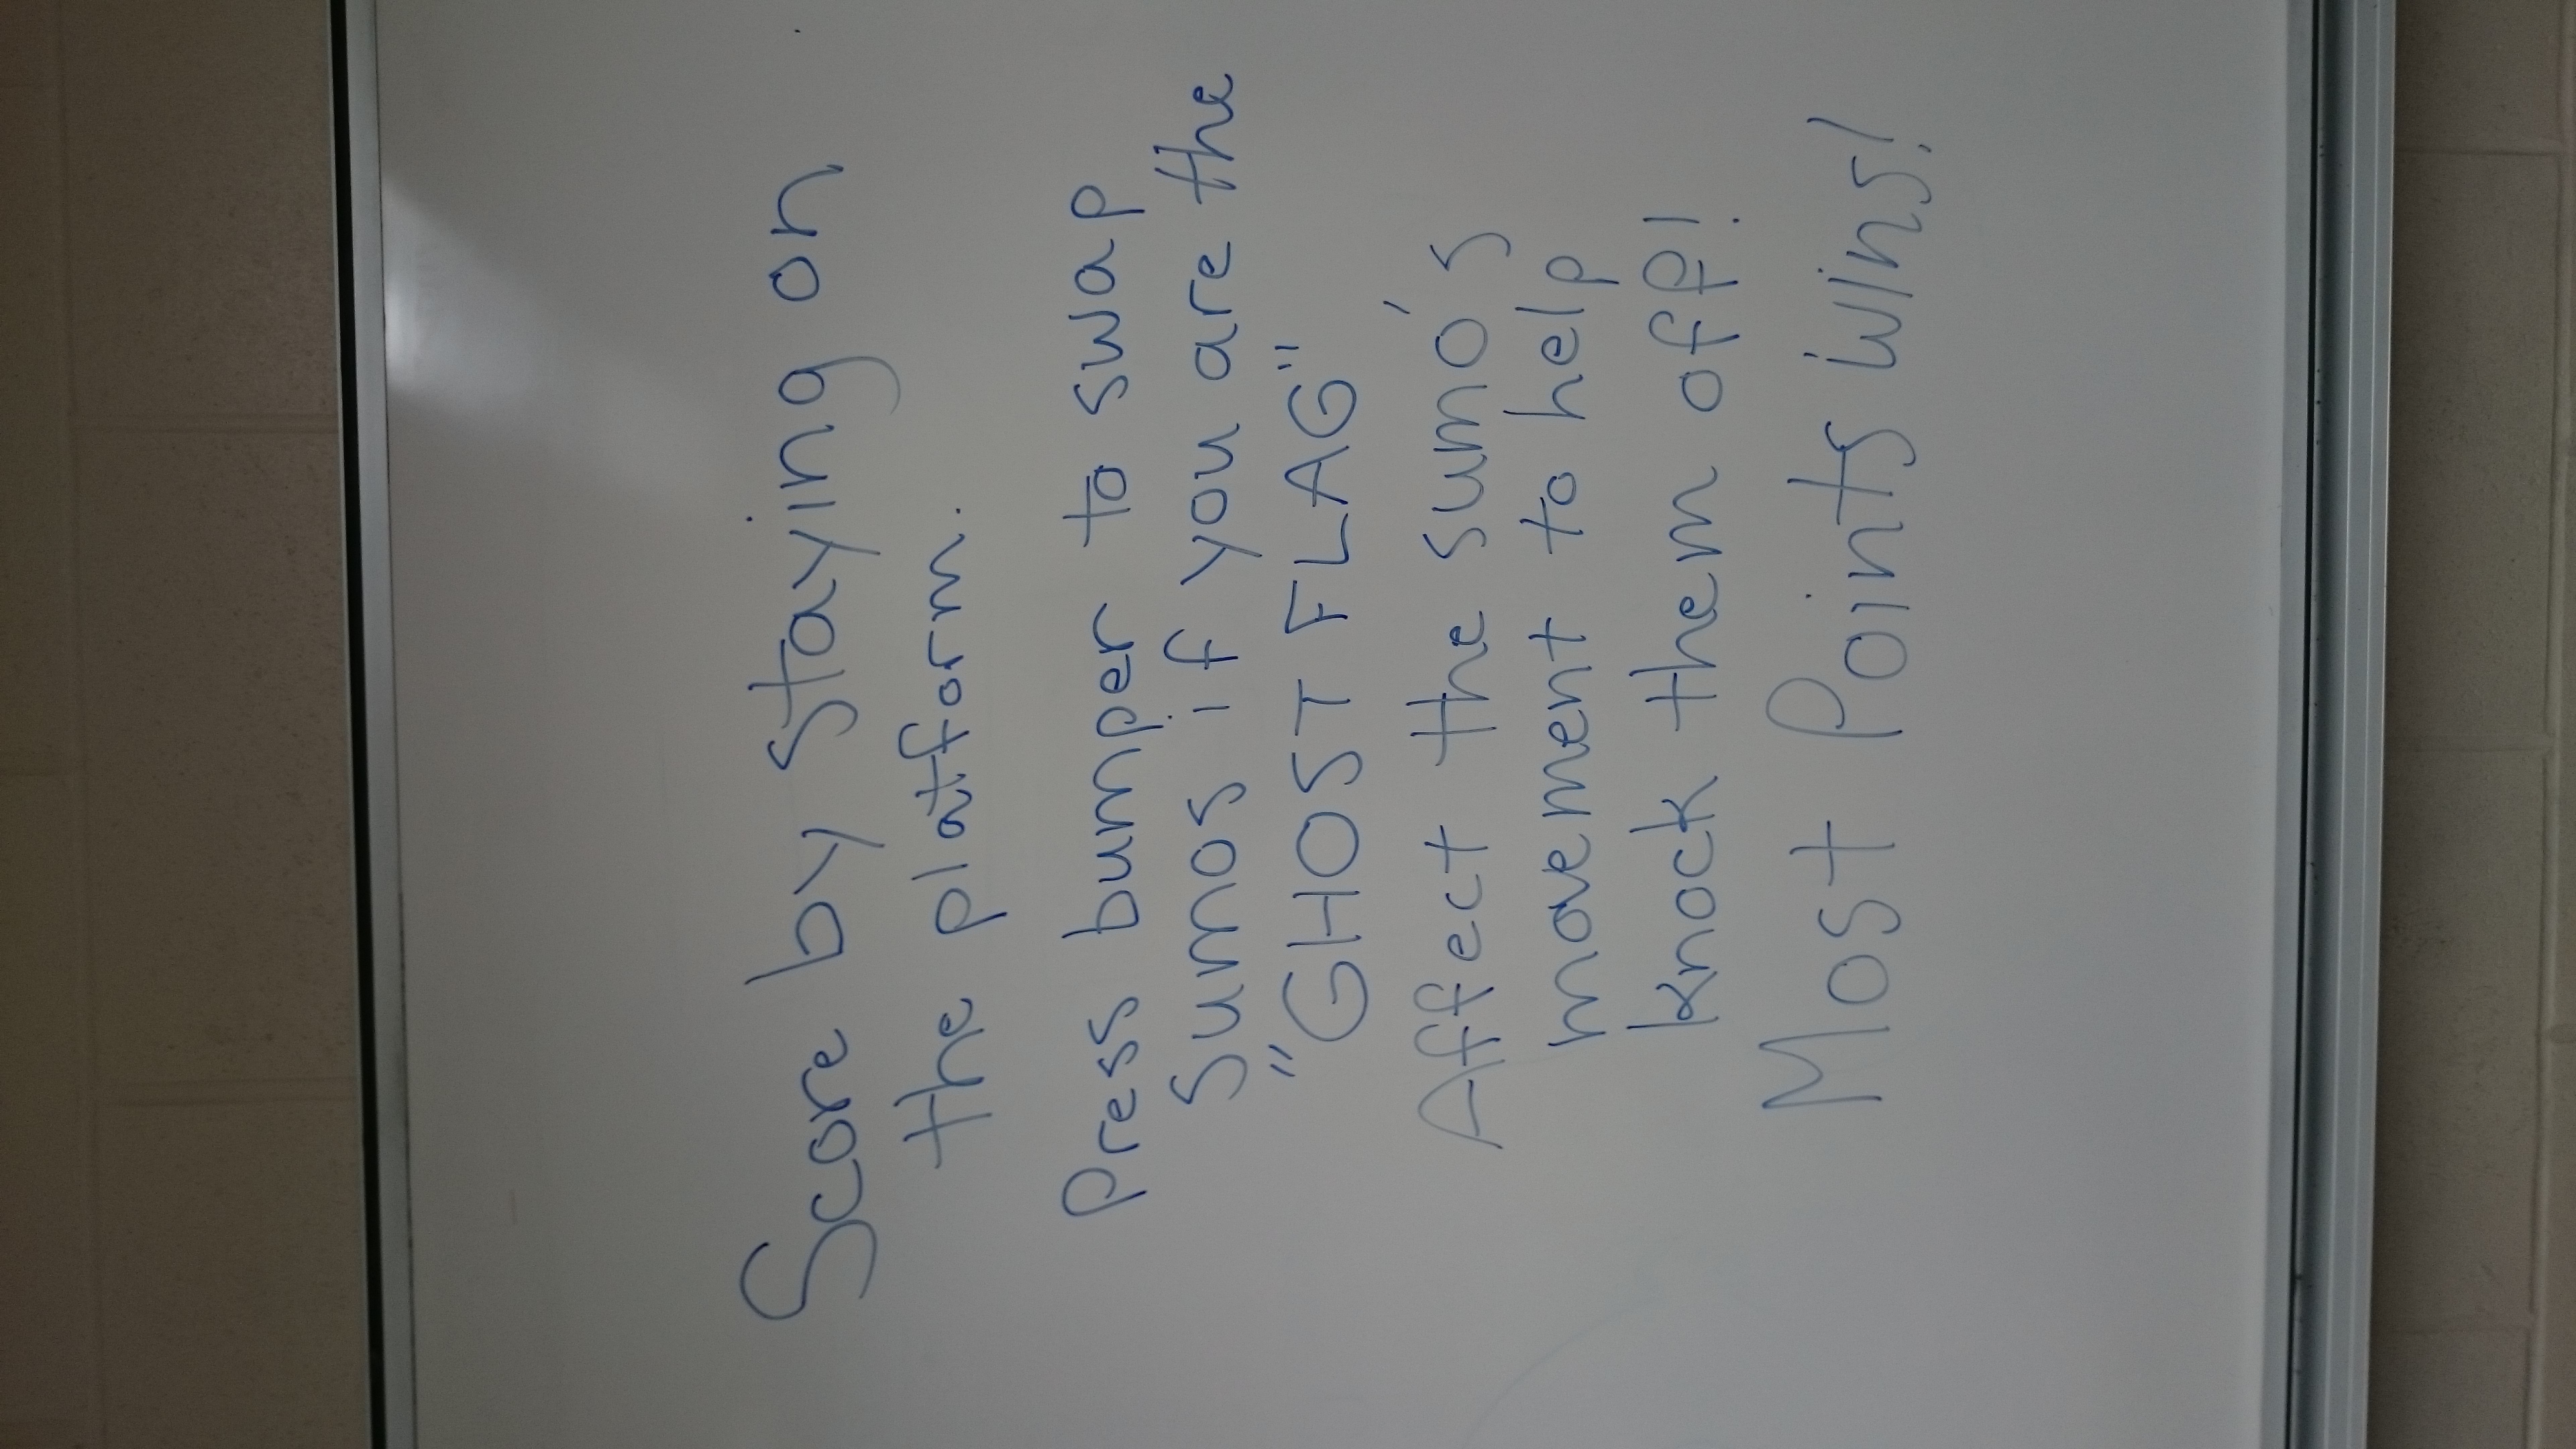 Score by staying on
the platform.
Press bumper to swap
sumos if you are the
"GHOST FLAG"
Affect the sumo's
movement to help
knock them off!
Most Points wins!